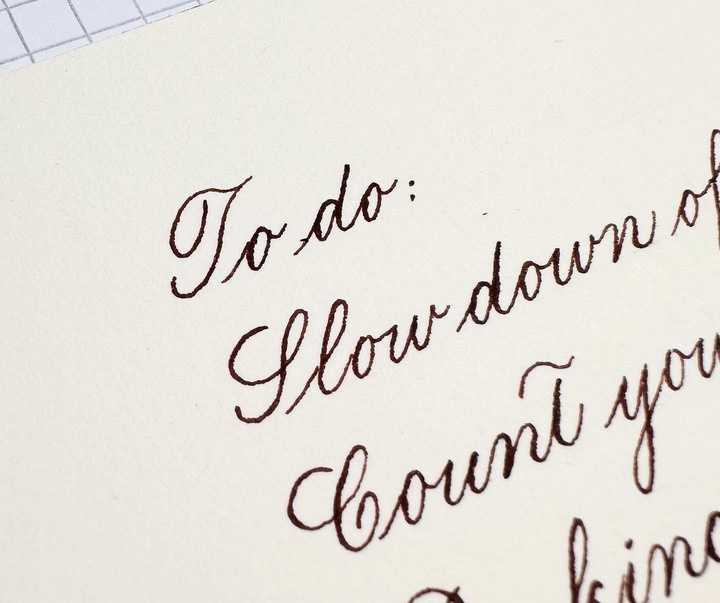 To do:
Slow down of
Count you
kind